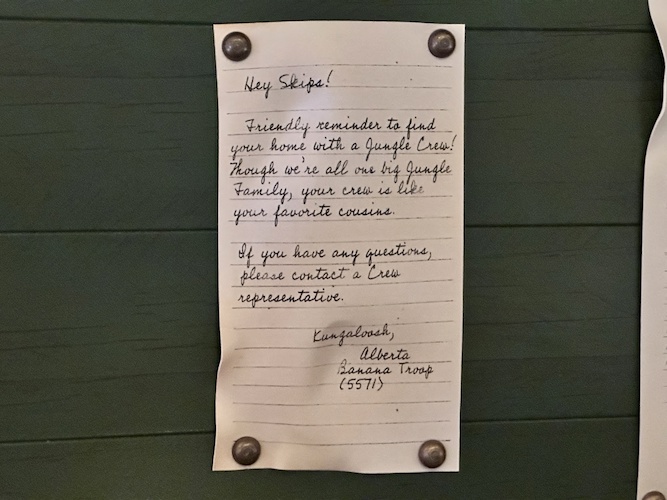 Hey Skips!
Friendly reminder to find
your home with a Jungle Crew!
Though we're all one big Jungle
Family, your crew is like
your favorite cousins.
If you have any questions,
please contact a Crew
representative.
Kungaloosh,
Alberta
Banana Troop
(5571)